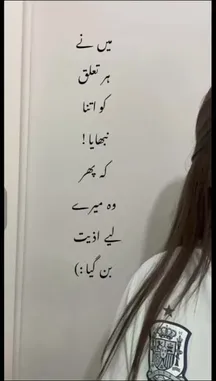 میں نے
ہر تعلق
کو اتنا
نبھایا !
کہ پھر
وہ میرے
لیے اذیت
بن گیا :)